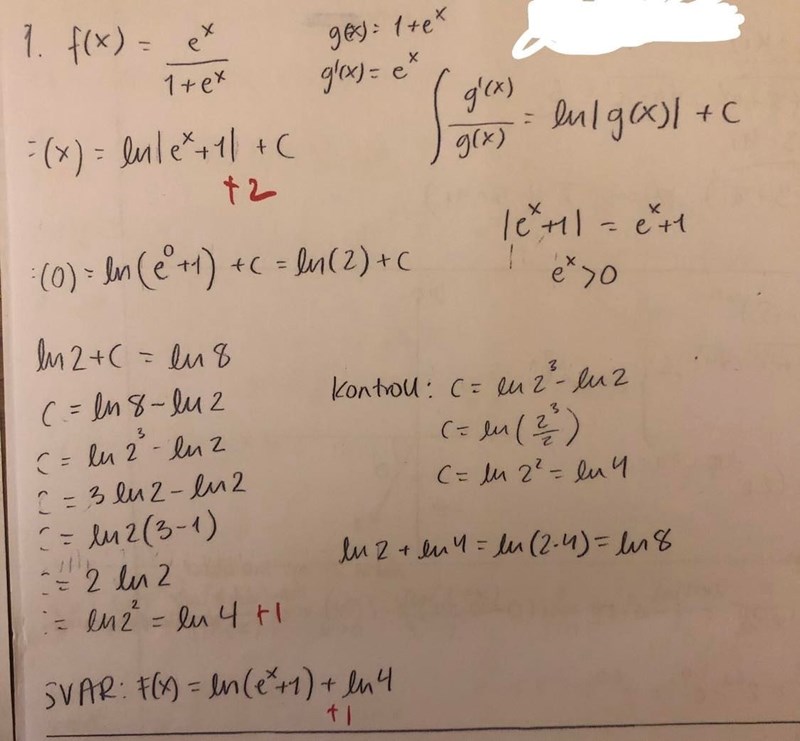 1. f(x) = e^x / (1+e^x)
g(x) = 1+e^x
g'(x) = e^x
∫ g'(x)/g(x) = ln|g(x)| + C
=(x) = ln|e^x+1| + C
+2
|e^x+1| = e^x+1
e^x>0
:(0) = ln(e^0+1) + C = ln(2) + C
ln2+C = ln8
C = ln8-ln2
C = ln 2^3 - ln2
C = 3 ln2 - ln2
C = ln2(3-1)
= 2 ln 2
= ln2^2 = ln 4 +1
Kontroll: C = ln 2^3 - ln2
C = ln(2^3/2)
C = ln 2^2 = ln4
ln2 + ln4 = ln(2·4) = ln8
SVAR: F(x) = ln(e^x+1) + ln4
+1